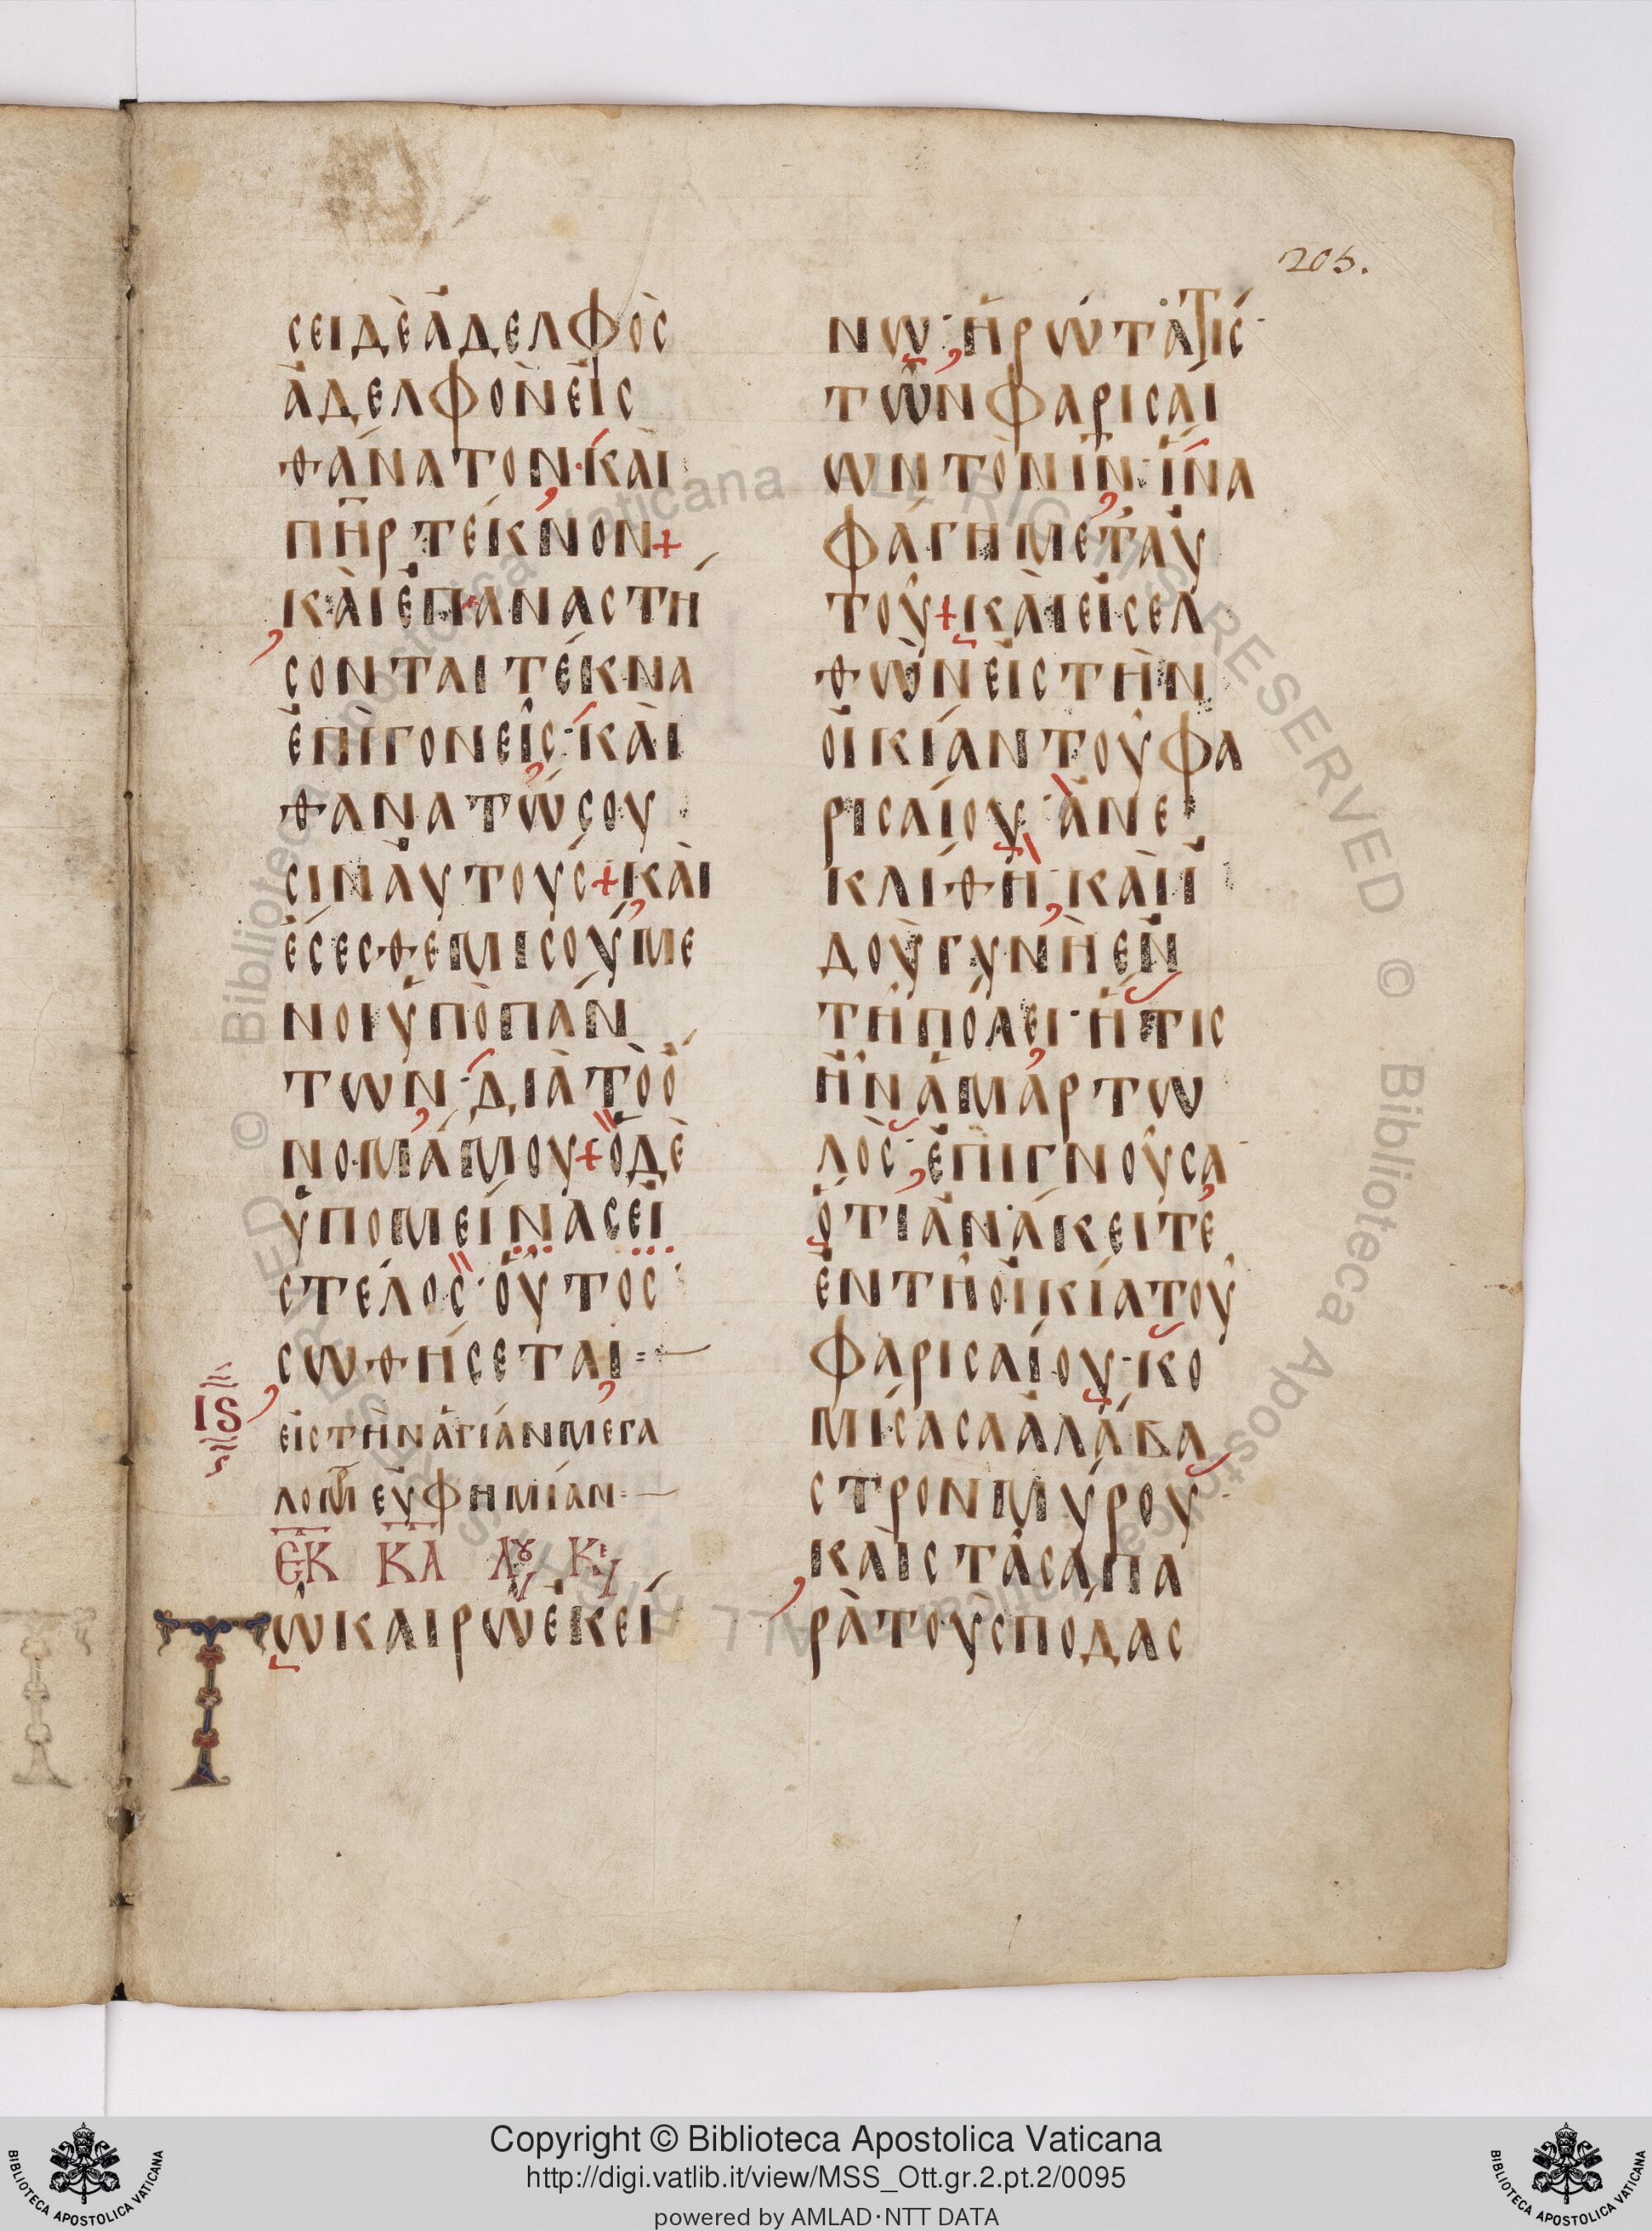 205.
ϲειδὲἀδελφὸϲ
ἀδελφὸνεἰϲ
θάνατον·καὶ
πη̅ρτέκνον+
καὶἐπαναϲτή
ϲονταιτέκνα
ἐπὶγονεῖϲ·καὶ
θανατώϲου
ϲιναὐτούϲ+καὶ
ἔϲεϲθεμιϲούμε
νοιὑπὸπάν
των·διὰτὸὄ
νομάμου+ὁδὲ
ὑπομείναϲεἰ
ϲτέλοϲ·οὗτοϲ
ϲωθήϲεται=
ΙϚ
εἰϲτὴνἁγίανμεγα
λομ̅εὐφημίαν=
ΕΚ ΚΛ Λου Κε
Τῶκαιρῶἐκεί
νω·ἠρώτατίϲ·
τῶνφαριϲαί
ωντὸνι̅ν·ἵνα
φάγημεταὐ
τοῦ+καὶειϲελ
θὼνεἰϲτὴν
οἰκίαντουφα
ριϲαίου·ἀνε
κλίθη·καὶἰ
δοὺγυνὴἐν
τῆπόλει·ἥτιϲ
ἦνἁμαρτω
λὸϲ·ἐπιγνοῦϲα
ὅτιἀνάκειτε
ἐντῆοἰκίατοῦ
φαριϲαίου·κο
μίϲαϲαἀλάβα
ϲτρονμύρου·
καὶϲτᾶϲαπα
ρὰτοὺϲπόδαϲ
Copyright © Biblioteca Apostolica Vaticana
http://digi.vatlib.it/view/MSS_Ott.gr.2.pt.2/0095
powered by AMLAD·NTT DATA
BIBLIOTECA APOSTOLICA VATICANA
BIBLIOTECA APOSTOLICA VATICANA